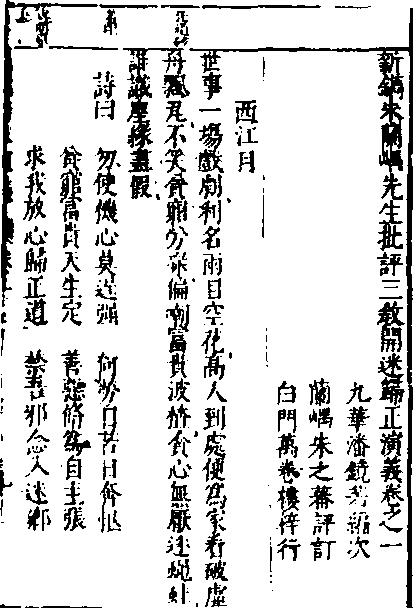 新鐫朱蘭嵎先生批評三教開迷歸正演義卷之一
九華潘鏡若編次
蘭嵎朱之蕃評訂
白門萬卷樓梓行
西江月
世事一場戲劇利名兩目空花高人到處便為家看破虛
舟飄瓦不笑貪癡分深偏嘲富貴波揸貪心無厭逐蠅蛙
誰識塵緣盡假
詩曰 勿使機心莫逞强 何勞日苦日奔忙
貧窮富貴天生定 善惡脩為自主張
求我放心歸正道 禁吾邪念入迷鄉